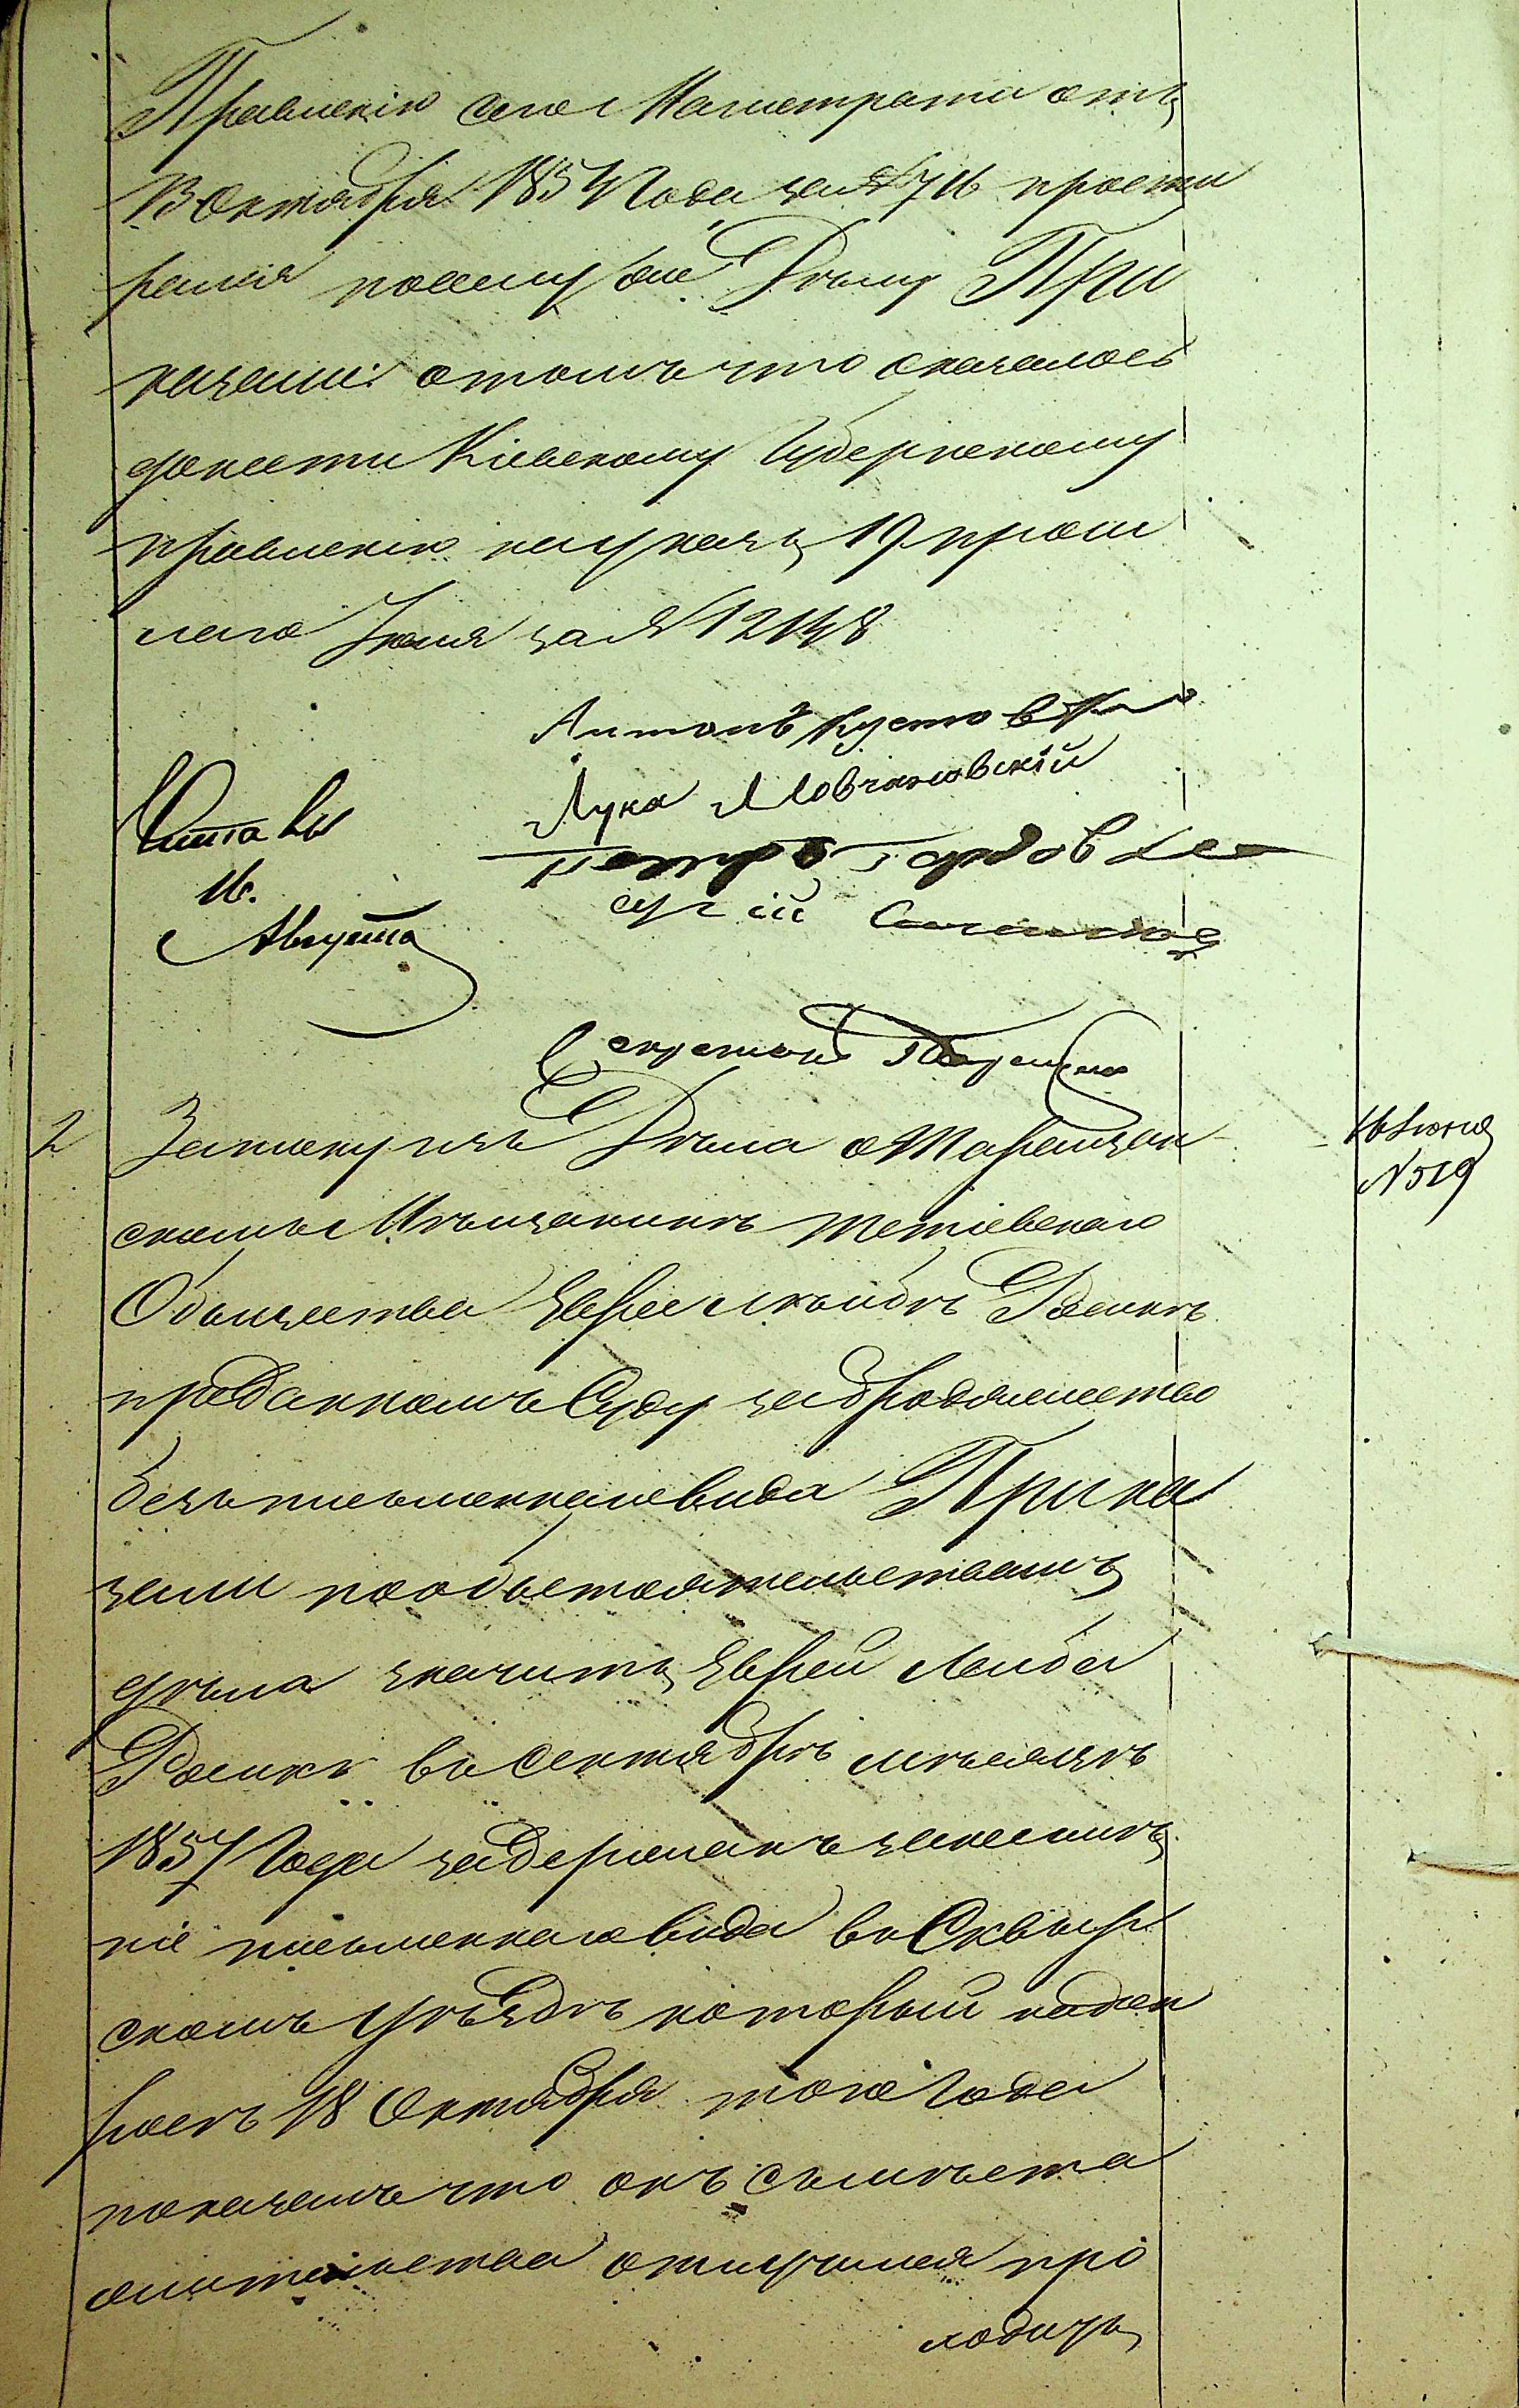 Правленію сего Магистрата отъ
13 Октября 1857 года за № 716 прости
раемія поему же Дѣлу При
казали: отомъ что оказалось
донести Кіевскому Губернскому
правленію на указъ 19 прош
лаго Іюля за № 12148
Антонъ Кустовскій
Лука Мовчановскій
Читалъ
16.
Августа
Петро Гордов
Секретарь
2
Записку изъ Дѣла о Таращан
скомъ Мѣщанинѣ Тетіевскаго
Общества Евреѣ Лейбѣ Роикѣ
преданномъ Суду за бродяжество
безъ письменнаго вида Прика
зали по обстоятельствамъ
дѣла значитъ, Еврей Лейба
Роикъ въ Сентябрѣ мѣсяцѣ
1857 года задержанъ за неимѣ
ніе письменнаго вида въ Сквир
скомъ Уѣздѣ который на доп
росѣ 18 Октября того года
показалъ что онъ съ мѣста
жительства отлучился про
ходить
16 Іюня
№ 519